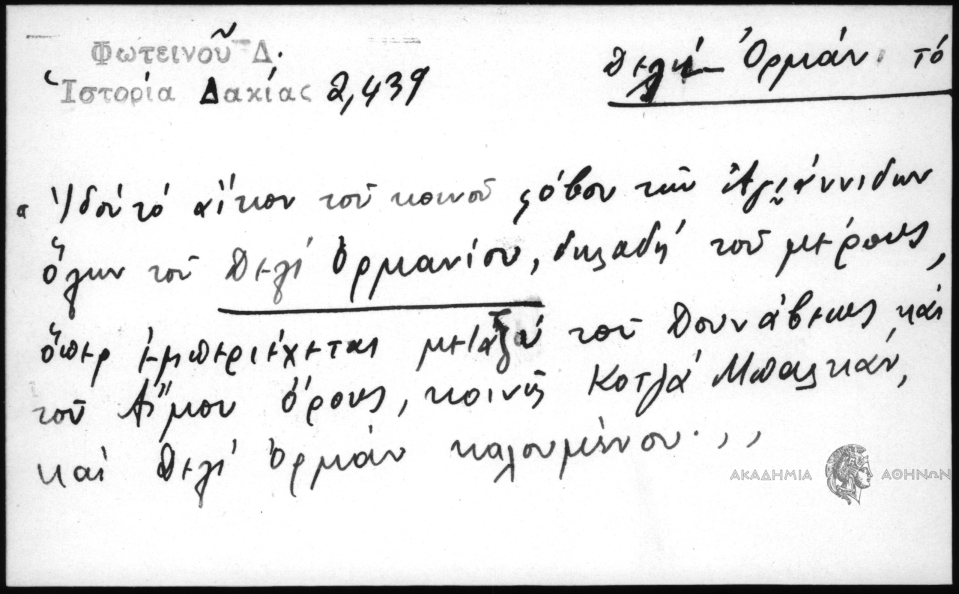 Φωτεινοῦ Δ.
Ἱστορία Δακίας 2,439
Δελή Ὀρμάν τό
"Ἰδού τό αἴτιον τοῦ κοινοῦ φόβου τῶν Ἀγιάννιδων
ὅλων τοῦ Δελί Ὀρμανίου, δηλαδή τοῦ μέρους,
ὅπερ ἐμπεριέχεται μεταξύ τοῦ Δουνάβεως καί
τοῦ Αἵμου ὄρους, κοινῶς Κοτζά Μπαλκάν,
καί Δελί Ὀρμάν καλουμένου.,,
ΑΚΑΔΗΜΙΑ ΑΘΗΝΩΝ